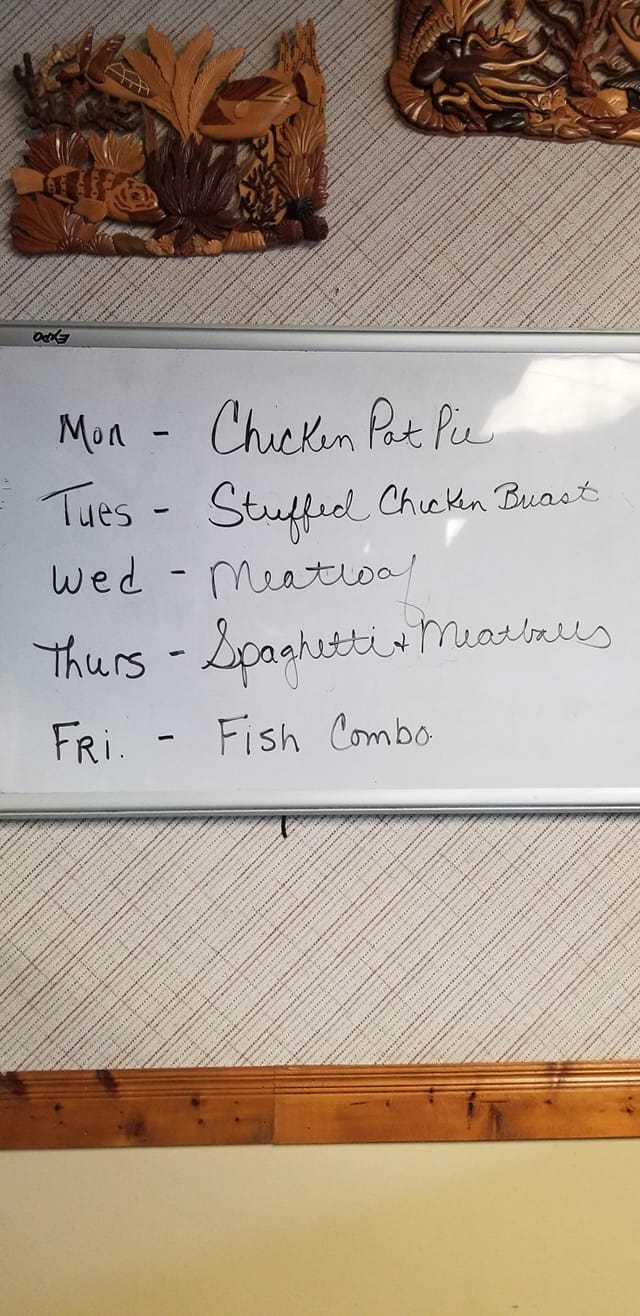 EXPO
Mon - Chicken Pot Pie
Tues - Stuffed Chicken Breast
Wed - Meatloaf
Thurs - Spaghetti + Meatballs
FRi. - Fish Combo.